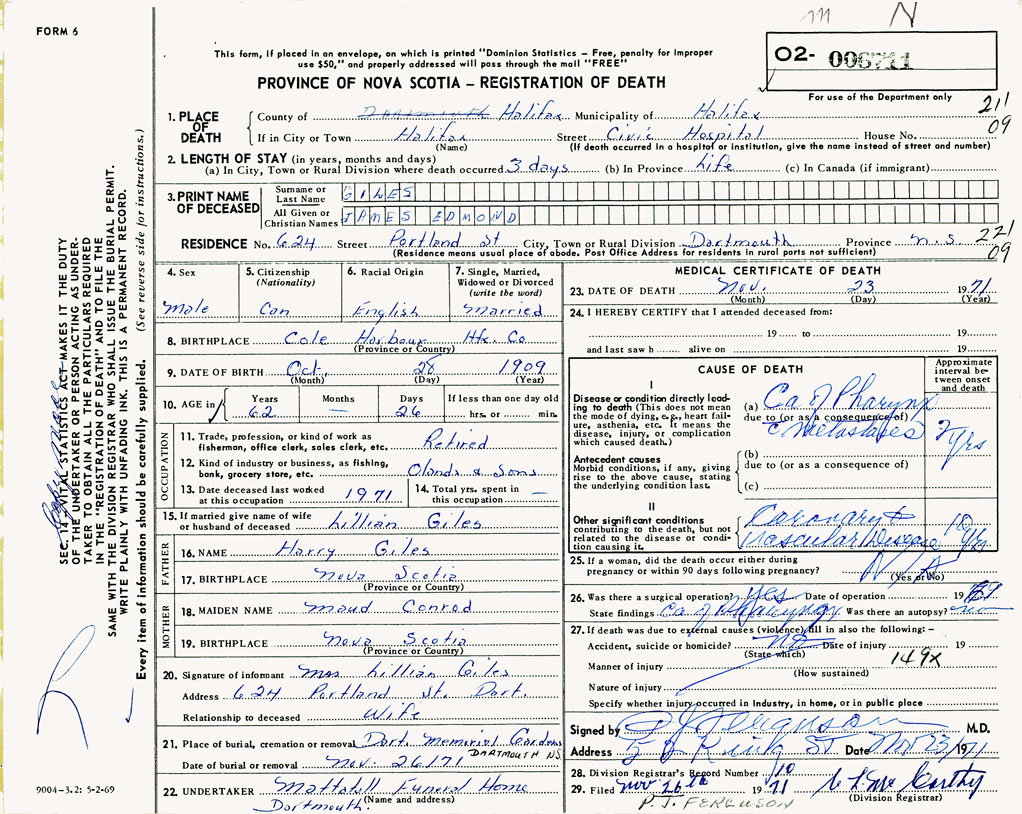 FORM 6
This form, if placed in an envelope, on which is printed "Dominion Statistics – Free, penalty for improper
use $50," and properly addressed will pass through the mail "FREE"
PROVINCE OF NOVA SCOTIA – REGISTRATION OF DEATH
N
O2- 006711
For use of the Department only
211
09
1. PLACE OF DEATH
County of Dartmouth Halifax Municipality of Halifax
If in City or Town Halifax Street Civic Hospital House No.
(Name) (If death occurred in a hospital or institution, give the name instead of street and number)
2. LENGTH OF STAY (in years, months and days)
(a) In City, Town or Rural Division where death occurred 3 days (b) In Province Life (c) In Canada (if immigrant)
3. PRINT NAME OF DECEASED
Surname or Last Name GILES
All Given or Christian Names JAMES EDMOND
RESIDENCE No. 624 Street Portland St City, Town or Rural Division Dartmouth Province N.S.
221
09
(Residence means usual place of abode. Post Office Address for residents in rural parts not sufficient)
4. Sex
Male
5. Citizenship
(Nationality)
Can
6. Racial Origin
English
7. Single, Married,
Widowed or Divorced
(write the word)
Married
8. BIRTHPLACE Cole Harbour Hfx. Co
(Province or Country)
9. DATE OF BIRTH Oct. 28 1909
(Month) (Day) (Year)
10. AGE in
Years 62
Months —
Days 26
If less than one day old
hrs. or min.
OCCUPATION
11. Trade, profession, or kind of work as
fisherman, office clerk, sales clerk, etc. Retired
12. Kind of industry or business, as fishing,
bank, grocery store, etc. Olands & Sons
13. Date deceased last worked
at this occupation 1971
14. Total yrs. spent in
this occupation —
15. If married give name of wife
or husband of deceased Lillian Giles
FATHER
16. NAME Harry Giles
17. BIRTHPLACE Nova Scotia
(Province or Country)
MOTHER
18. MAIDEN NAME Maud Conrod
19. BIRTHPLACE Nova Scotia
(Province or Country)
20. Signature of informant Mrs Lillian Giles
Address 624 Portland St. Dart.
Relationship to deceased Wife
21. Place of burial, cremation or removal Dart. Memorial Gardens
DARTMOUTH N.S.
Date of burial or removal Nov. 26/71
22. UNDERTAKER Mattatall Funeral Home
(Name and address)
Dartmouth.
MEDICAL CERTIFICATE OF DEATH
23. DATE OF DEATH Nov. 23 1971
(Month) (Day) (Year)
24. I HEREBY CERTIFY that I attended deceased from:
19 to 19
and last saw h alive on 19
CAUSE OF DEATH
Approximate
interval be-
tween onset
and death
I
Disease or condition directly lead-
ing to death (This does not mean
the mode of dying, e.g., heart fail-
ure, asthenia, etc. It means the
disease, injury, or complication
which caused death.)
(a) Ca of Pharynx
due to (or as a consequence of)
c metastases 2 yrs
Antecedent causes
Morbid conditions, if any, giving
rise to the above cause, stating
the underlying condition last.
(b)
due to (or as a consequence of)
(c)
II
Other significant conditions
contributing to the death, but not
related to the disease or condi-
tion causing it.
Coronary &
vascular Disease 10 yrs
25. If a woman, did the death occur either during
pregnancy or within 90 days following pregnancy? N A
(Yes or No)
26. Was there a surgical operation? Yes Date of operation 19
State findings Ca of Pharynx Was there an autopsy? no
27. If death was due to external causes (violence) fill in also the following: –
Accident, suicide or homicide? Date of injury 19
(State which)
149x
Manner of injury
(How sustained)
Nature of injury
Specify whether injury occurred in Industry, in home, or in public place
Signed by P J Ferguson M.D.
Address King St Date Nov 23/1971
28. Division Registrar's Record Number 110
29. Filed Nov 26th 1971
(Division Registrar)
P. J. FERGUSON
SEC. 14 – VITAL STATISTICS ACT – MAKES IT THE DUTY
OF THE UNDERTAKER OR PERSON ACTING AS UNDER-
TAKER TO OBTAIN ALL THE PARTICULARS REQUIRED
IN THE "REGISTRATION OF DEATH" AND TO FILE THE
SAME WITH THE DIVISION REGISTRAR WHO SHALL ISSUE THE BURIAL PERMIT.
WRITE PLAINLY WITH UNFADING INK. THIS IS A PERMANENT RECORD.
Every item of information should be carefully supplied. (See reverse side for instructions.)
9004–3.2: 5-2-69